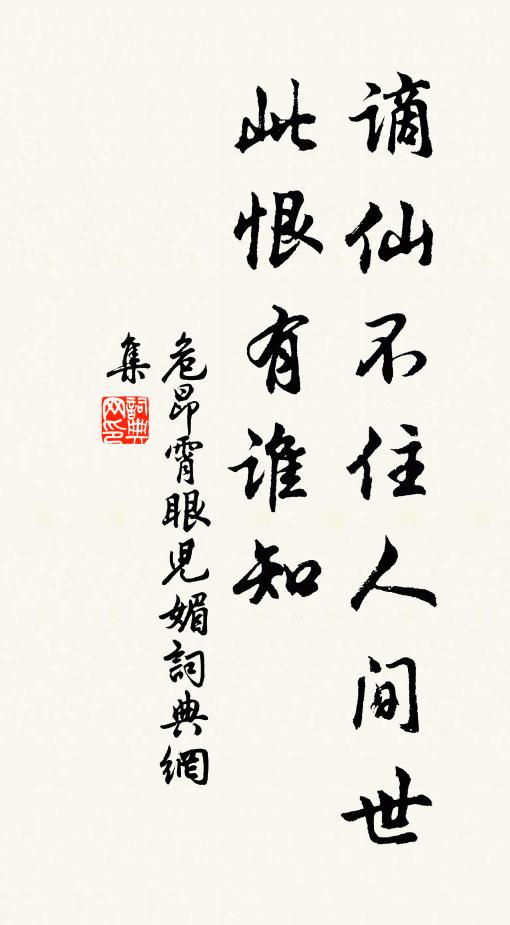 謫仙不住人间世
此恨有誰知
危昂霄眼児媚詞典網
集
詞典
网印